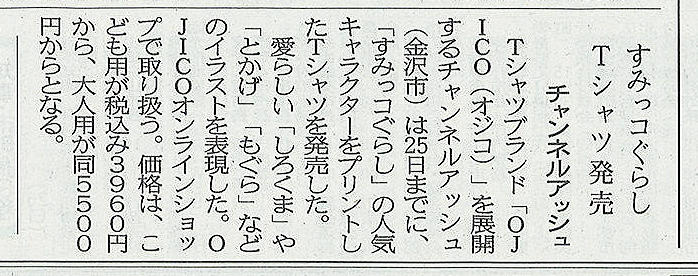 すみっコぐらし
Ｔシャツ発売
チャンネルアッシュ
Ｔシャツブランド「ＯＪ
ＩＣＯ（オジコ）」を展開
するチャンネルアッシュ
（金沢市）は25日までに、
「すみっコぐらし」の人気
キャラクターをプリントし
たＴシャツを発売した。
愛らしい「しろくま」や
「とかげ」「もぐら」など
のイラストを表現した。Ｏ
ＪＩＣＯオンラインショッ
プで取り扱う。価格は、こ
ども用が税込み３９６０円
から、大人用が同５５００
円からとなる。